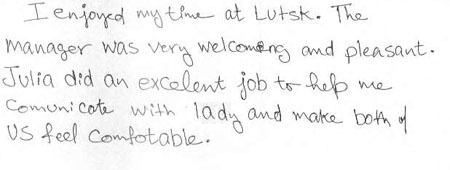 I enjoyed my time at Lutsk. The
manager was very welcoming and pleasant.
Julia did an excelent job to help me
Comunicate with lady and make both of
US feel Comfotable.